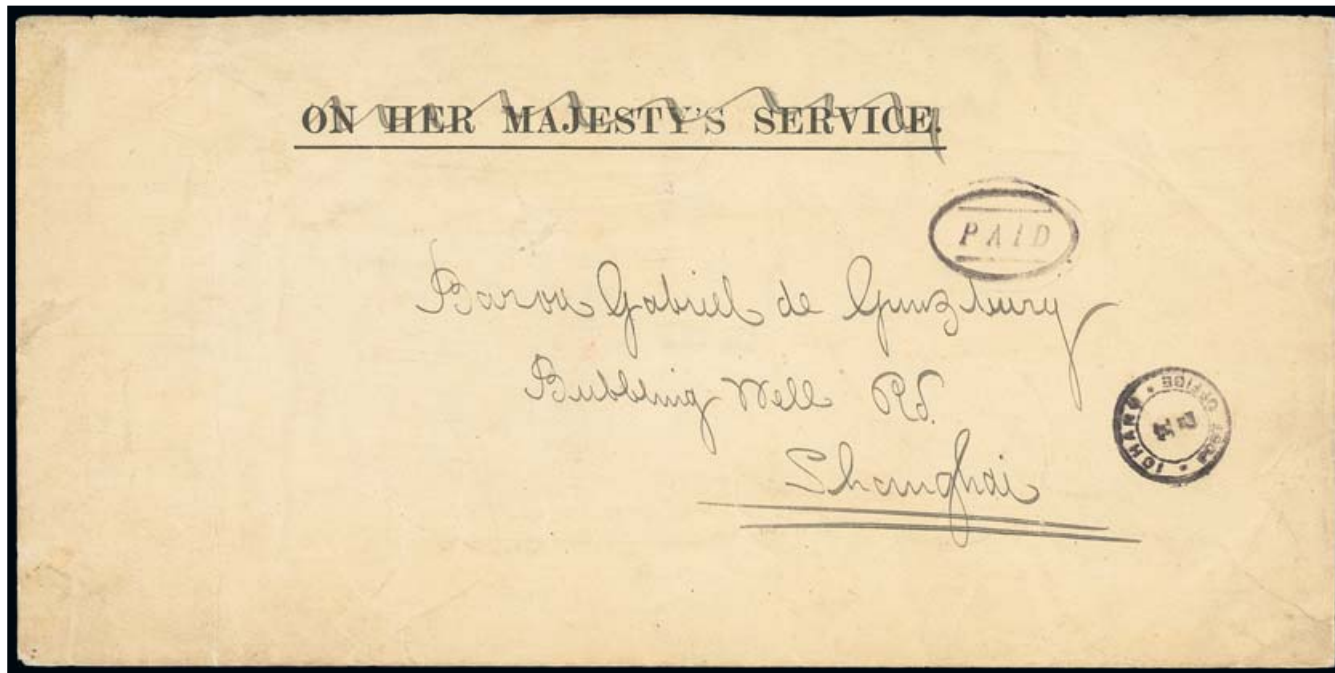 ON HER MAJESTY'S SERVICE.
PAID
Baron Gabriel de Gunzburg
Bubbling Well Rd.
Shanghai
POST OFFICE • ICHANG •